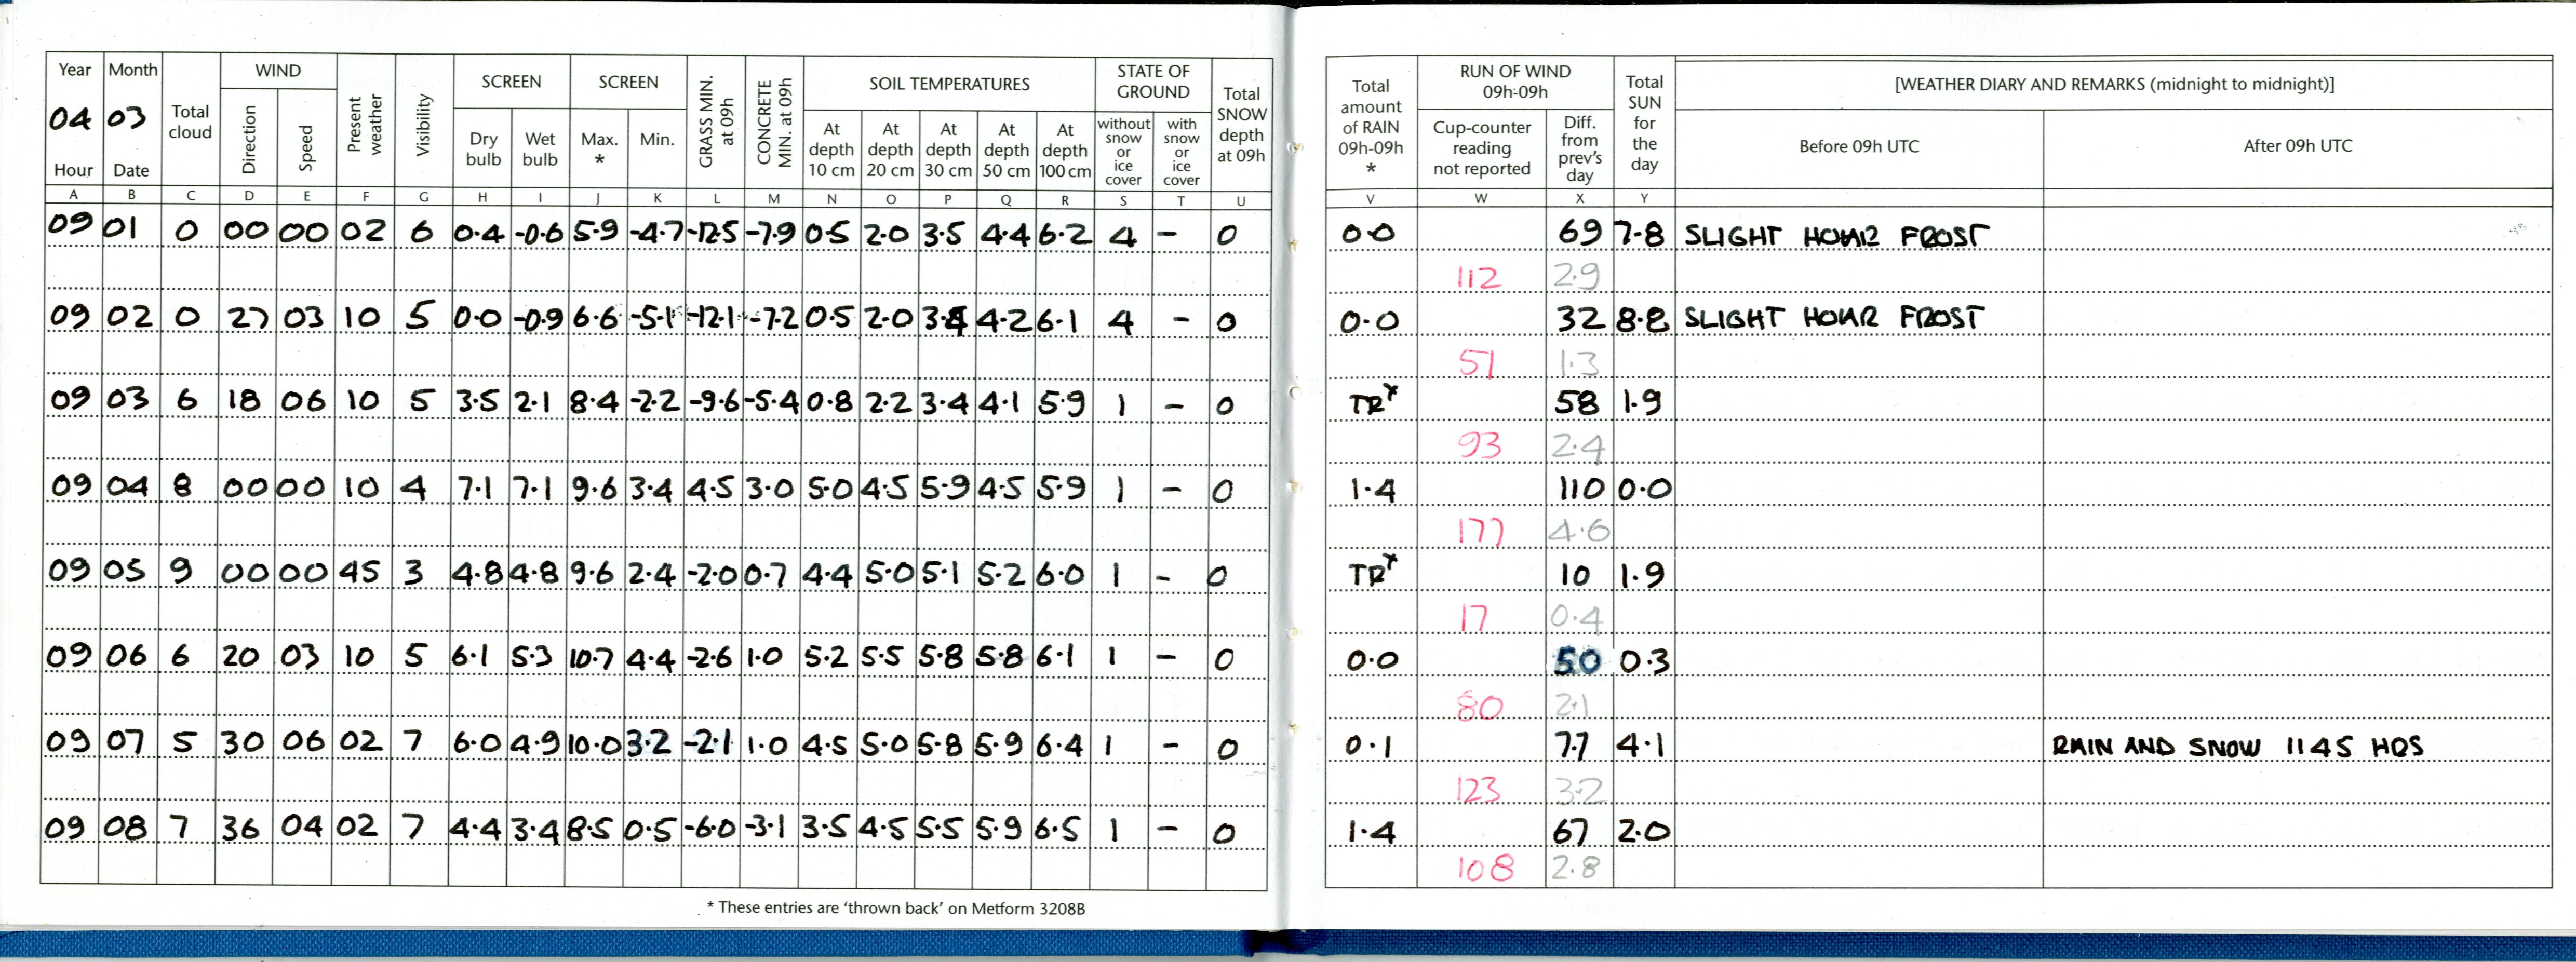 Year Month Total cloud WIND Present weather Visibility SCREEN SCREEN GRASS MIN. at 09h CONCRETE MIN. at 09h SOIL TEMPERATURES STATE OF GROUND Total SNOW depth at 09h Total amount of RAIN 09h-09h * RUN OF WIND 09h-09h Total SUN for the day [WEATHER DIARY AND REMARKS (midnight to midnight)]
04 03
Hour Date Direction Speed Dry bulb Wet bulb Max. * Min. At depth 10 cm At depth 20 cm At depth 30 cm At depth 50 cm At depth 100 cm without snow or ice cover with snow or ice cover Cup-counter reading not reported Diff. from prev's day Before 09h UTC After 09h UTC
A B C D E F G H I J K L M N O P Q R S T U V W X Y
09 01 0 00 00 02 6 0.4 -0.6 5.9 -4.7 -12.5 -7.9 0.5 2.0 3.5 4.4 6.2 4 - 0 0.0 69 7.8 SLIGHT HOAR FROST
112 2.9
09 02 0 27 03 10 5 0.0 -0.9 6.6 -5.1 -12.1 -7.2 0.5 2.0 3.4 4.2 6.1 4 - 0 0.0 32 8.8 SLIGHT HOAR FROST
51 1.3
09 03 6 18 06 10 5 3.5 2.1 8.4 -2.2 -9.6 -5.4 0.8 2.2 3.4 4.1 5.9 1 - 0 TR* 58 1.9
93 2.4
09 04 8 00 00 10 4 7.1 7.1 9.6 3.4 4.5 3.0 5.0 4.5 5.9 4.5 5.9 1 - 0 1.4 110 0.0
177 4.6
09 05 9 00 00 45 3 4.8 4.8 9.6 2.4 -2.0 0.7 4.4 5.0 5.1 5.2 6.0 1 - 0 TR* 10 1.9
17 0.4
09 06 6 20 03 10 5 6.1 5.3 10.7 4.4 -2.6 1.0 5.2 5.5 5.8 5.8 6.1 1 - 0 0.0 50 0.3
80 2.1
09 07 5 30 06 02 7 6.0 4.9 10.0 3.2 -2.1 1.0 4.5 5.0 5.8 5.9 6.4 1 - 0 0.1 77 4.1 RAIN AND SNOW 1145 HRS
123 3.2
09 08 7 36 04 02 7 4.4 3.4 8.5 0.5 -6.0 -3.1 3.5 4.5 5.5 5.9 6.5 1 - 0 1.4 67 2.0
108 2.8
* These entries are ‘thrown back’ on Metform 3208B